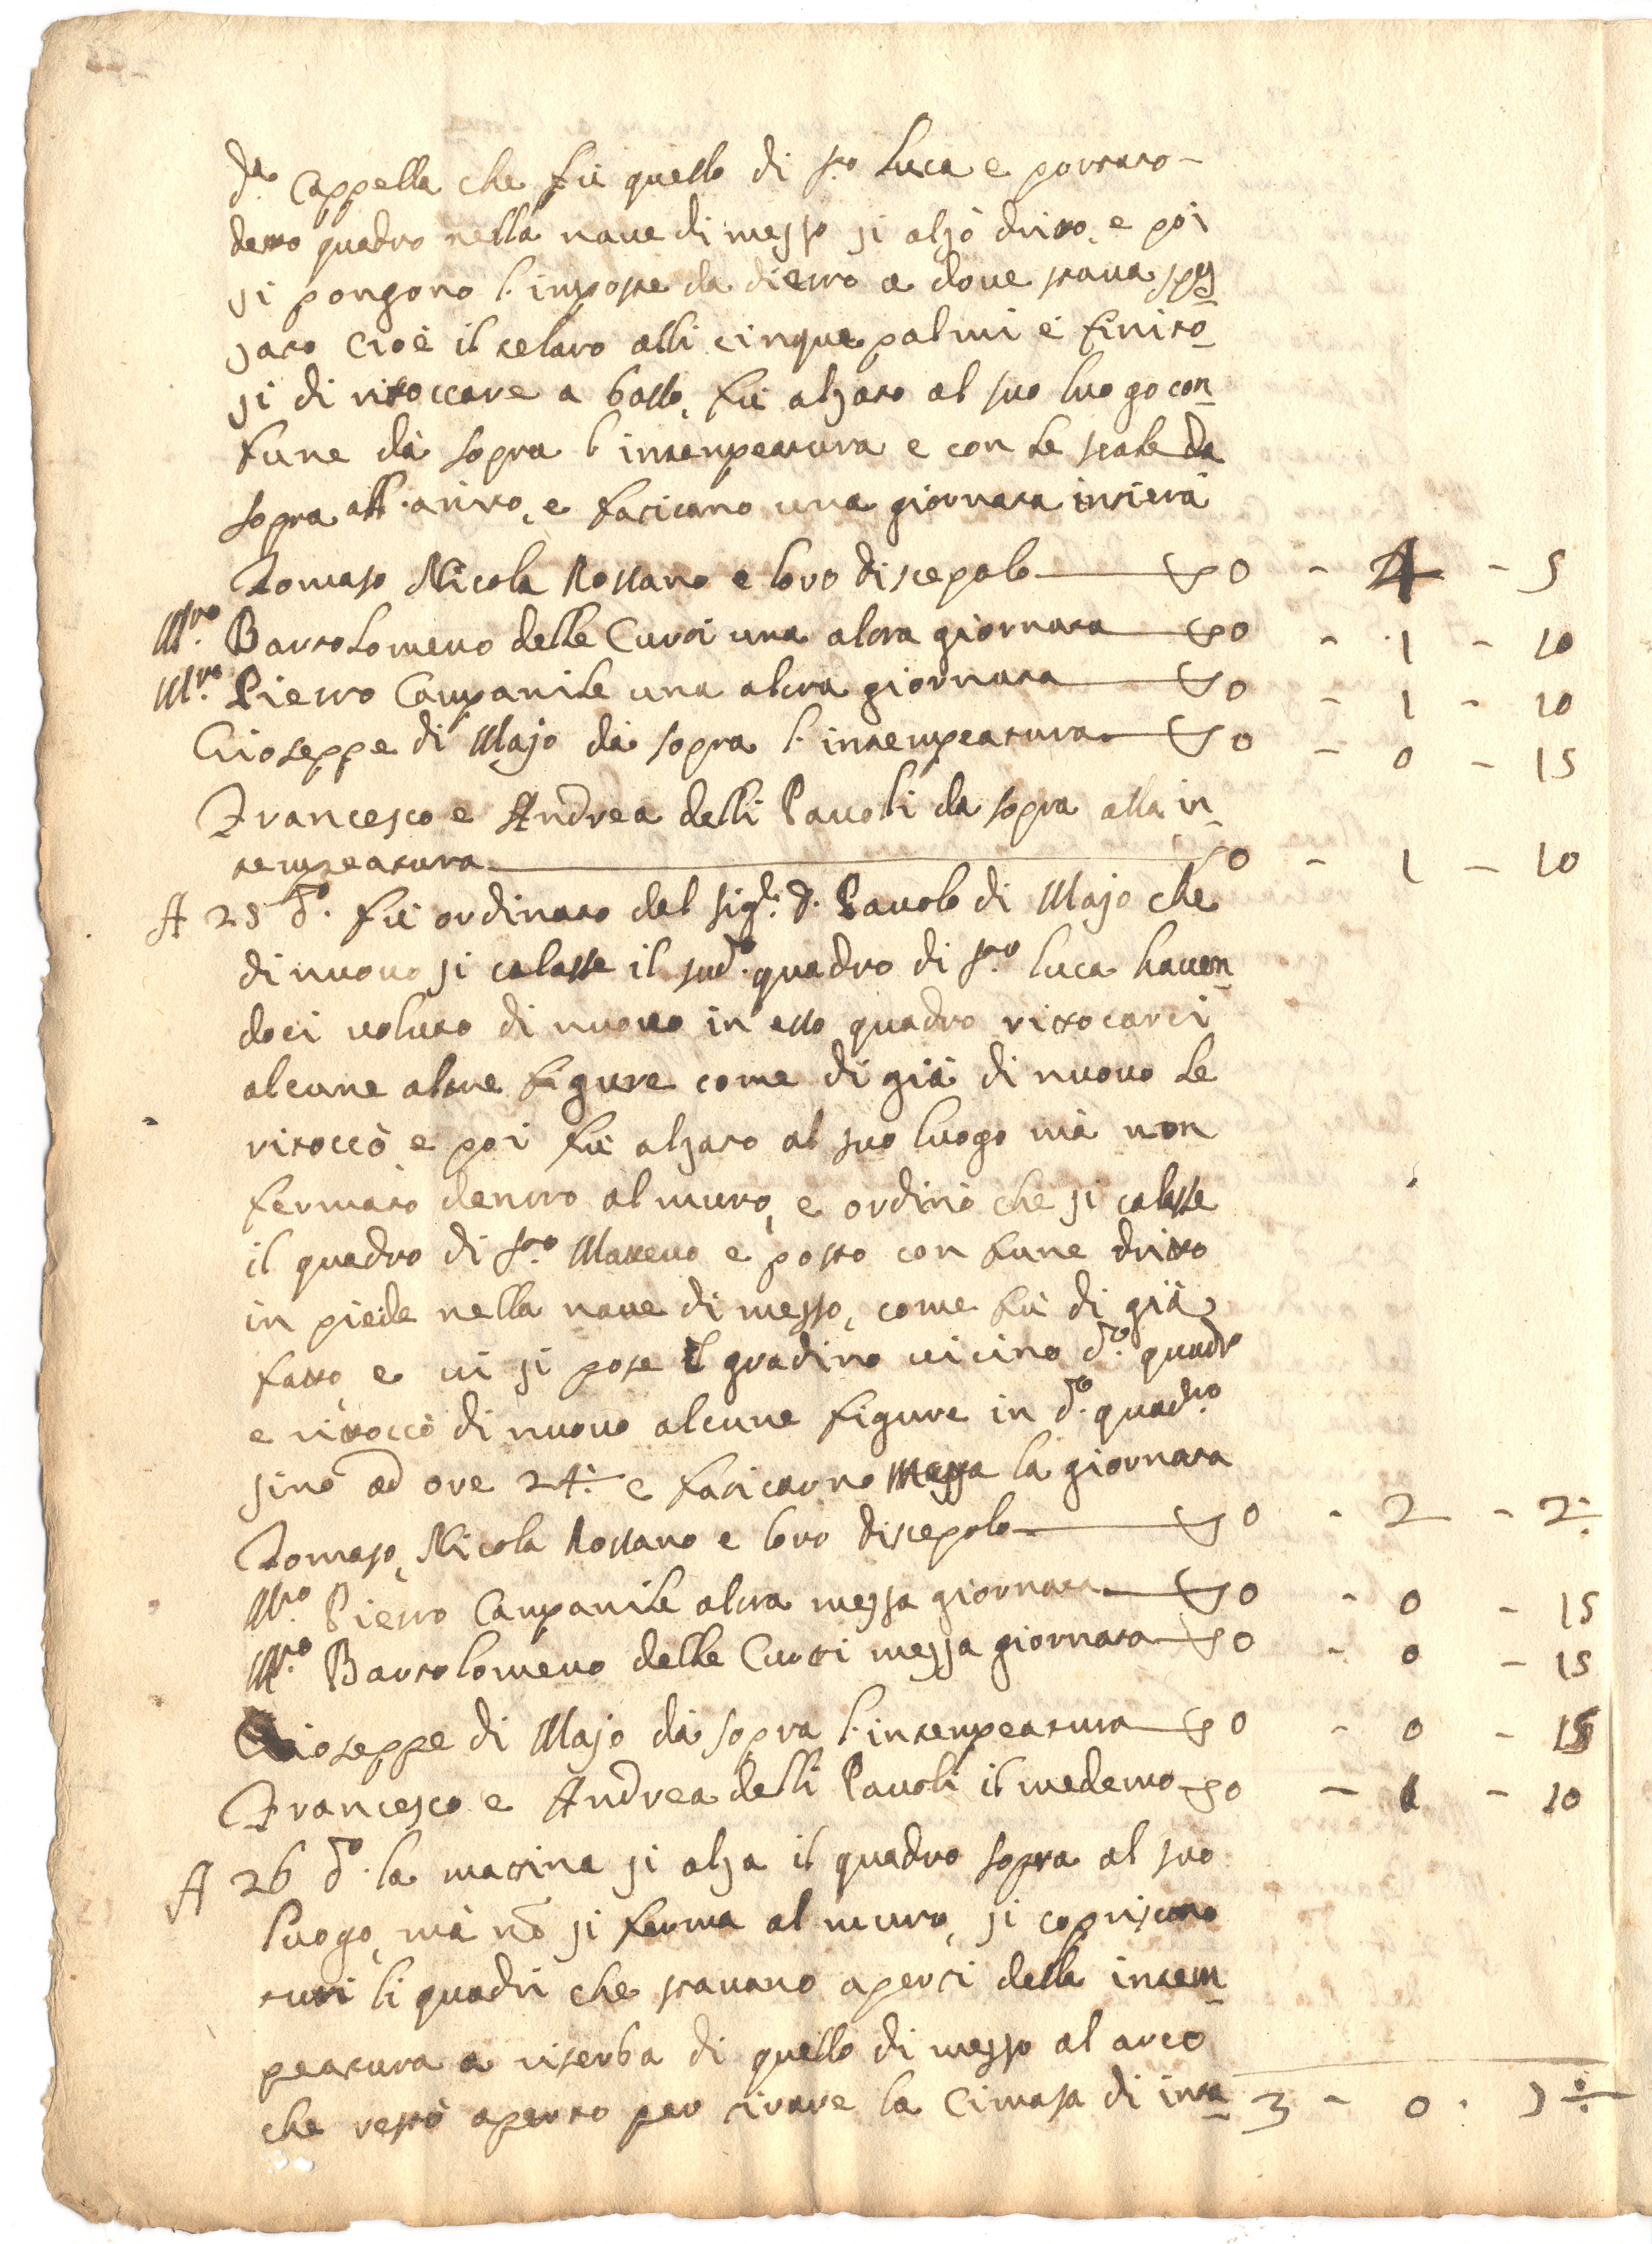 d.ª Cappella che fù quello di S.to Luca e portato
detto quadro nella naue di mezzo si alzò dritto, e poi
si pongono l'imposte da dietro a doue staua spez
zato cioè il telaro alli cinque palmi e finito
si di rittoccare a basso, fù alzato al suo luogo con
fune dà sopra l'intempeatura e con le scale da
sopra all'attro, e faticano una giornata intiera
Tomaso Nicola Rossano e loro discepolo — D 0 - 4 - 5
M.ro Bartolomeuo delle Curti una altra giornata — D 0 - 1 - 10
M.ro Pietro Campanile una altra giornata — D 0 - 1 - 10
Gioseppe di Majo dà sopra l'intempeatura — D 0 - 0 - 15
Francesco e Andrea delli Pauoli da sopra alla in
tempeatura — D 0 - 1 - 10
A 25 d.º fù ordinato del Sig.r D. Pauolo di Majo che
di nuouo si calasse il sud.º quadro di S.to Luca hauen
doci uoluto di nuouo in esso quadro rittocarci
alcune altre figure come di già di nuouo le
ritoccò e poi fù alzato al suo luogo mà non
fermato dentro al muro, e ordinò che si calasse
il quadro di S.to Matteuo e posto con fune dritto
in piede nella naue di mezzo, come fù di già
fatto, e ui si pose il gradino uicino d.º quadr
e rittoccò di nuouo alcune figure in d.º quad.ro
sino ad ore 24: e faticarno mezza la giornata
Tomaso, Nicola Rossano e loro discepolo — D 0 - 2 - 2:
M.ro Pietro Campanile altra mezza giornata — D 0 - 0 - 15
M.ro Bartolomeuo delle Curti mezza giornata — D 0 - 0 - 15
Gioseppe di Majo dà sopra l'intempeatura — D 0 - 0 - 15
Francesco e Andrea delli Pauoli il medemo — D 0 - 1 - 10
A 26 d.º la matina si alza il quadro sopra al suo
luogo, mà nō si ferma al muro, si coprirono
tutti li quadri che stauano aperti della intem
peatura a riserba di quello di mezzo al arco
che restò aperto per tirare la Cimasa di inta 3 - 0 .